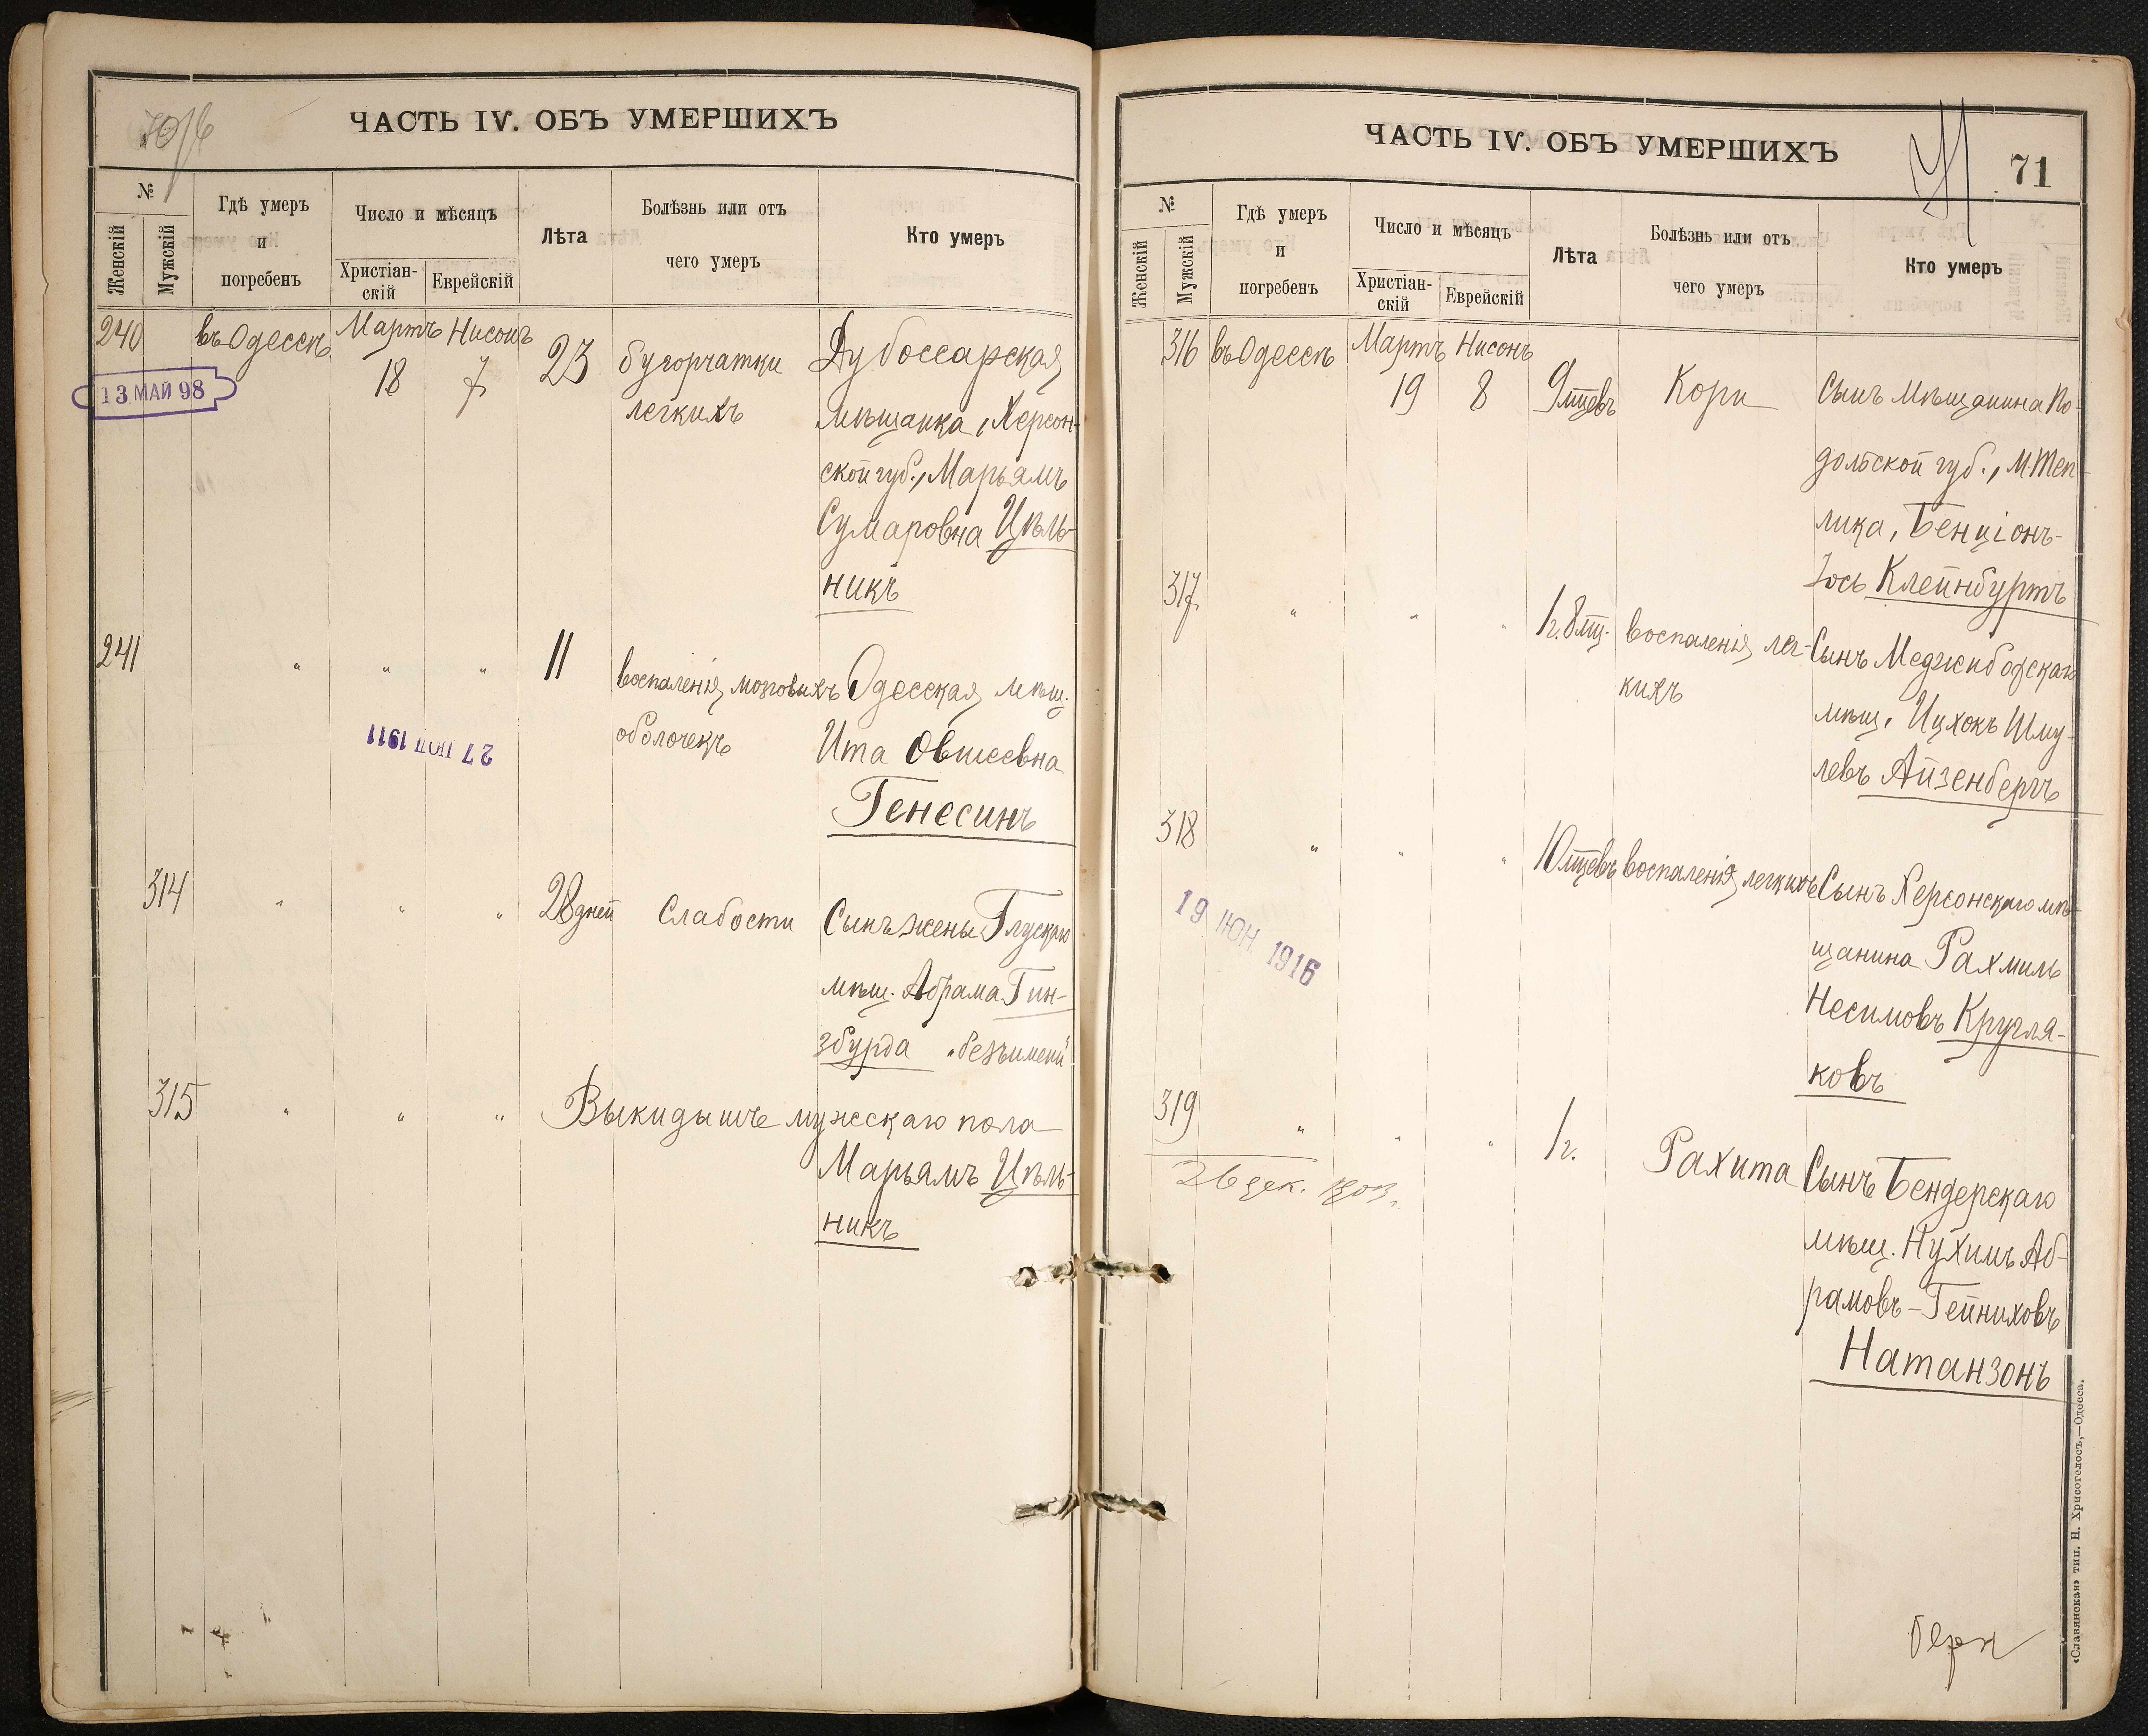 ЧАСТЬ IV. ОБЪ УМЕРШИХЪ
№
Женскій
Мужскій
Гдѣ умеръ
и
погребенъ
Число и мѣсяцъ
Христіан-
скій
Еврейскій
Лѣта
Болѣзнь или отъ
чего умеръ
Кто умеръ
240
въ Одессѣ
Мартъ
18
Нисонъ
7
23
бугорчатки
легкихъ
Дубоссарская
мѣщанка, Херсон-
ской губ., Марьямъ
Сумаровна Цѣль-
никъ
13 МАЙ 98
241
"
"
"
11
воспаленія мозговыхъ
оболочекъ
Одесская мѣщ.
Ита Овшеевна
Генесинъ
27 1911
314
"
"
"
28 дней
Слабости
Сынъ жены Глускаго
мѣщ. Абрама Гин-
збурга „безъ имени"
315
"
"
"
Выкидышъ мужскаго пола
Марьямъ Цѣль-
никъ
ЧАСТЬ IV. ОБЪ УМЕРШИХЪ
71
№
Женскій
Мужскій
Гдѣ умеръ
и
погребенъ
Число и мѣсяцъ
Христіан-
скій
Еврейскій
Лѣта
Болѣзнь или отъ
чего умеръ
Кто умеръ
316
въ Одессѣ
Мартъ
19
Нисонъ
8
9 мцевъ
Кори
Сынъ мѣщанина По-
дольской губ., м. Теп-
лика, Бенціонъ-
Іось Клейнбуртъ
317
"
"
"
1 г. 8 мц.
воспаленія лег-
кихъ
Сынъ Меджибожскаго
мѣщ. Ицхокъ Шму-
левъ Айзенбергъ
318
"
"
"
10 мцевъ
воспаленія легкихъ
Сынъ Херсонскаго мѣ-
щанина Рахмиль
Несимовъ Кругля-
ковъ
19 ІЮН. 1916
319
"
"
"
1 г.
Рахита
Сынъ Бендерскаго
мѣщ. Нухимъ Аб-
рамовъ-Гейниховъ
Натанзонъ
26 дек.
«Славянская» тип. Н. Хрисогелосъ,—Одесса.